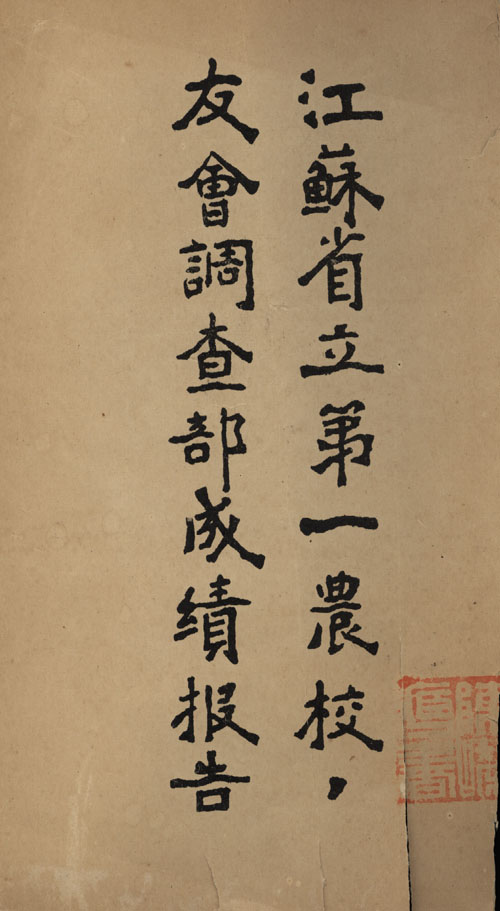 江蘇省立第一農校，
友會調查部成績报告